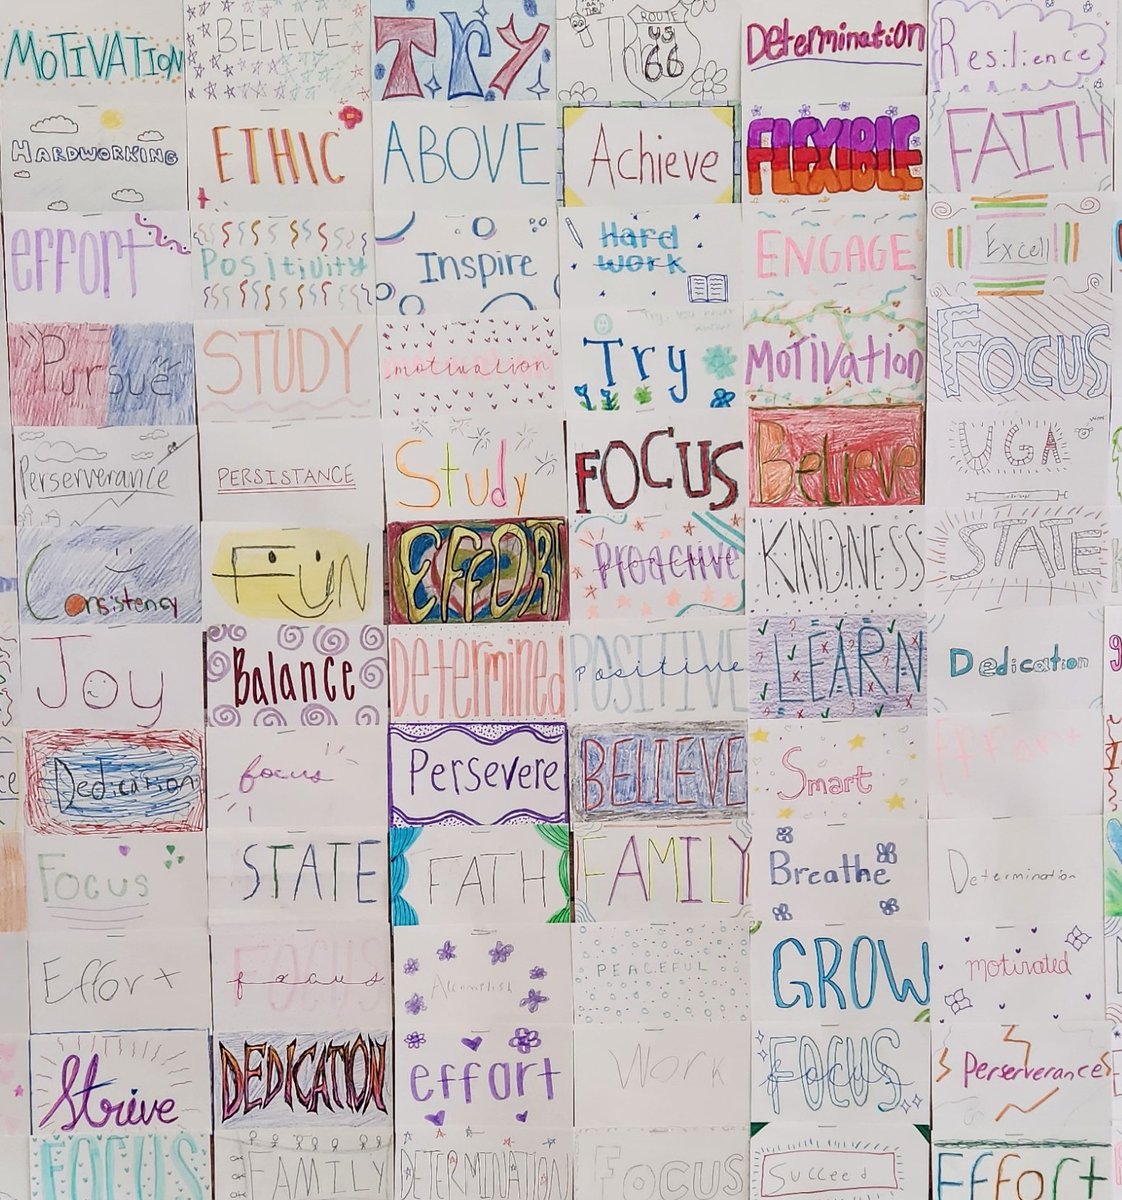 MOTIVATION
BELIEVE
Try
ROUTE
US
66
Determination
Resilience
HARDWORKING
ETHIC
ABOVE
Achieve
FLEXIBLE
FAITH
effort
Positivity
Inspire
Hard
work
ENGAGE
Excell
Pursue
STUDY
motivation
Try
MOTIVATION
FOCUS
Perserverance
PERSISTANCE
Study
FOCUS
Believe
UGA
Consistency
FUN
EFFORT
Proactive
KINDNESS
STATE
Joy
Balance
Determined
POSITIVE
Positive
LEARN
Dedication
Dedication
focus
Persevere
BELIEVE
Smart
Effort
Focus
STATE
FATH
FAMILY
Breathe
Determination
Effort
FOCUS
focus
Accomplish
PEACEFUL
GROW
motivated
Strive
DEDICATION
effort
Work
FOCUS
Perserverance
FOCUS
FAMILY
DETERMINATION
FOCUS
Succeed
Effort